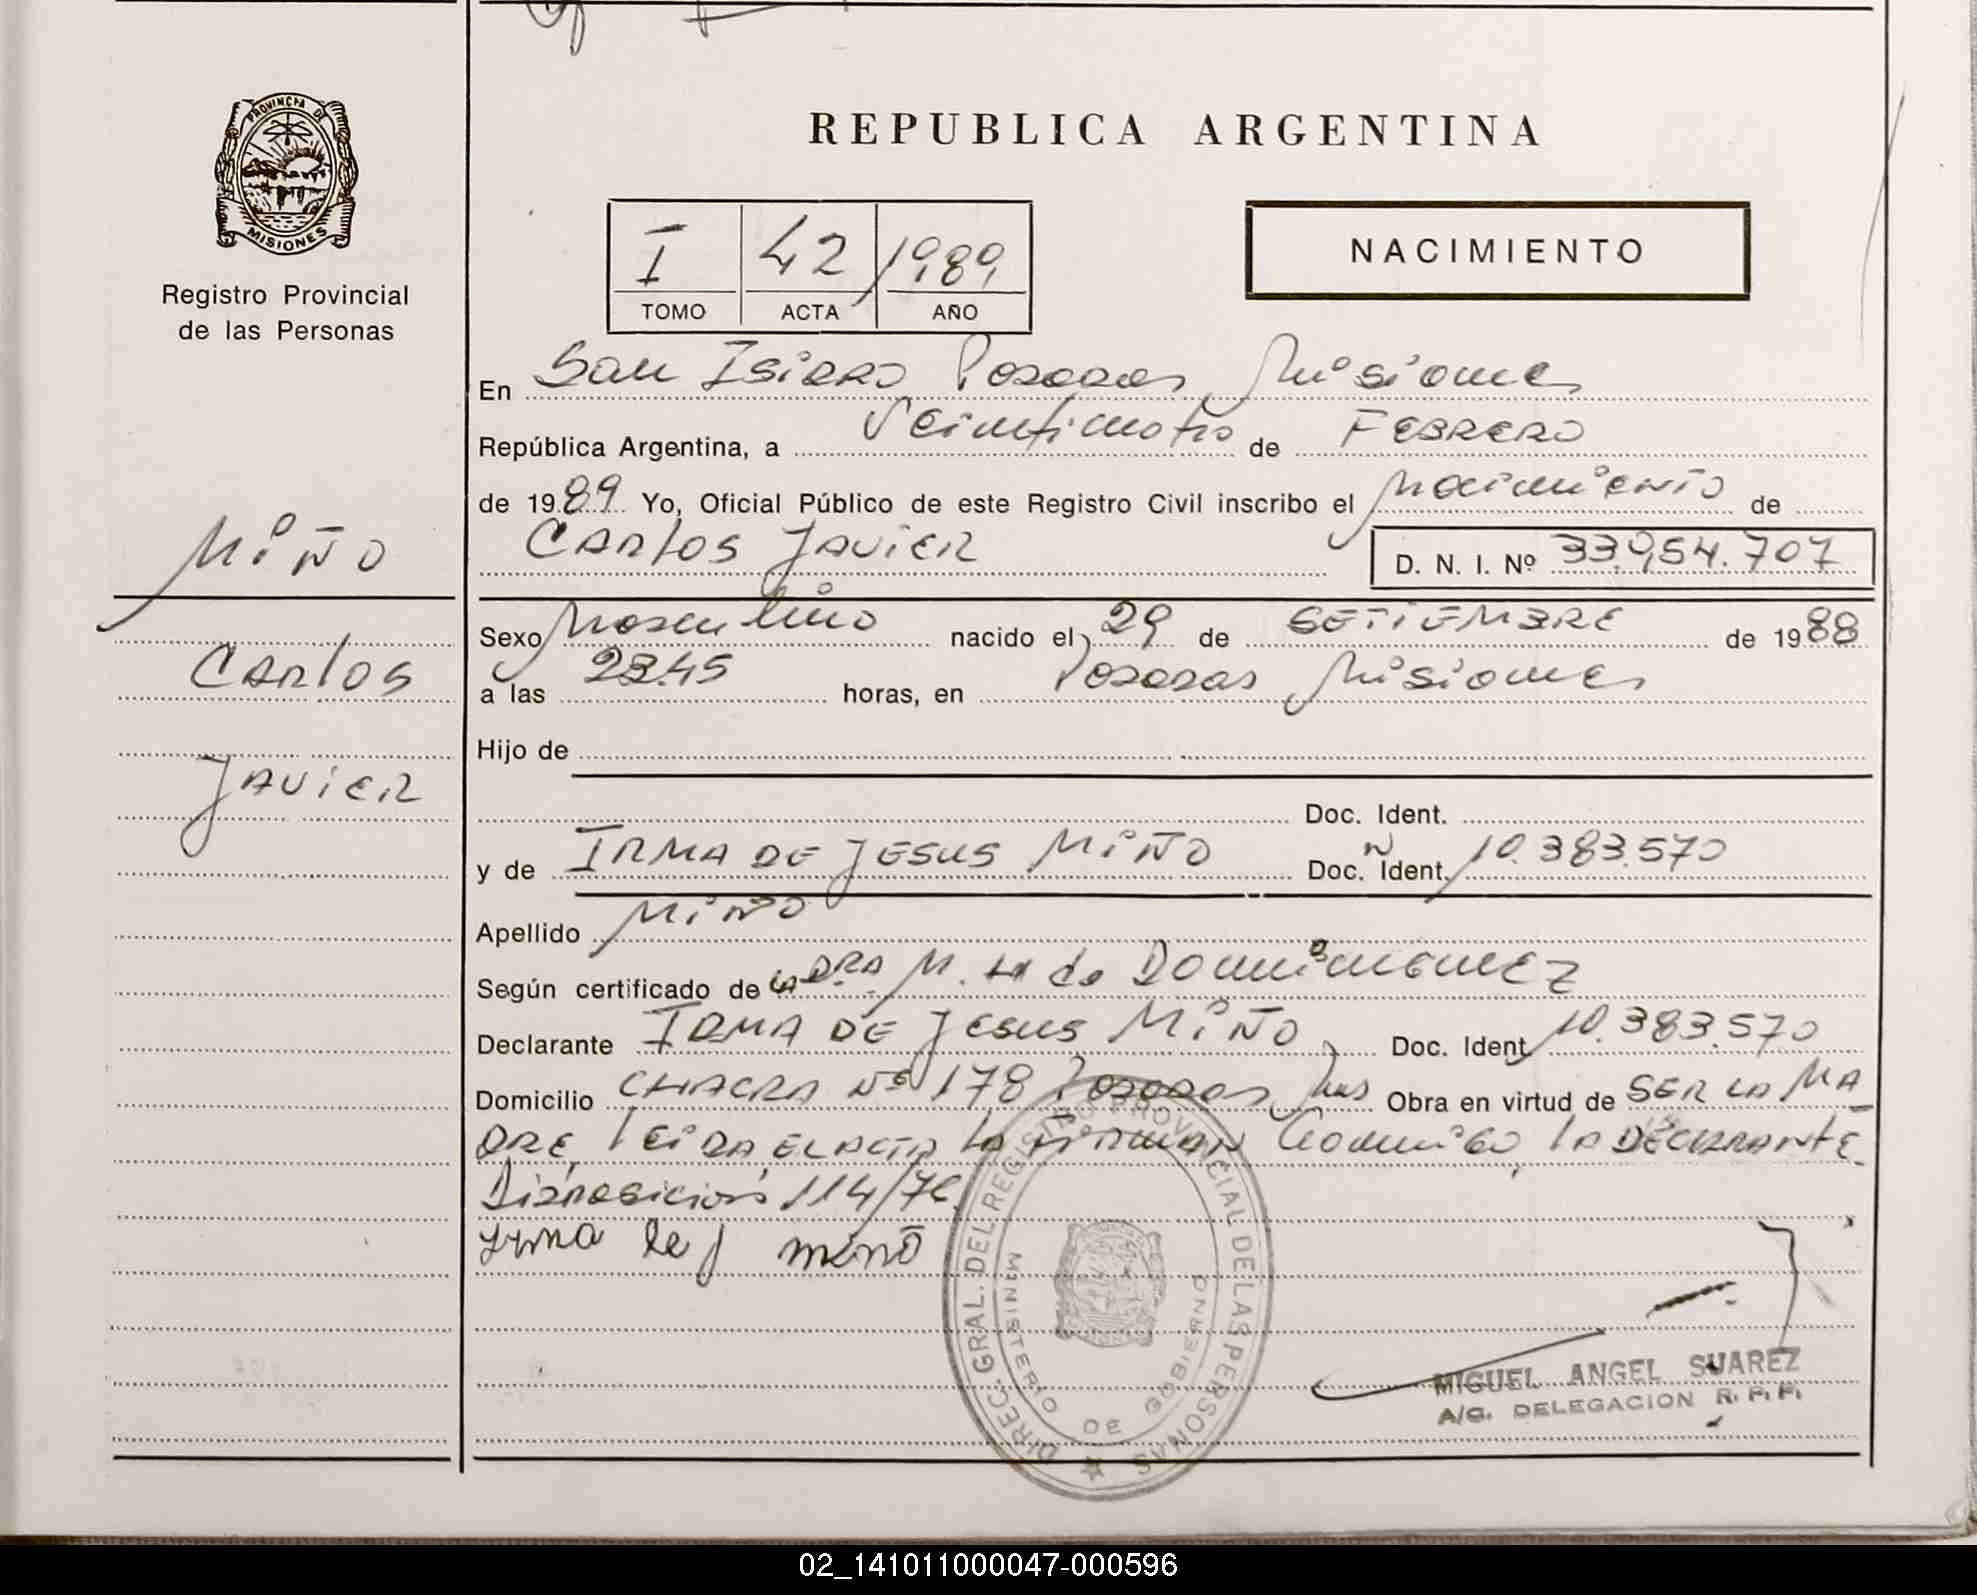 REPUBLICA ARGENTINA
PROVINCIA DE
MISIONES
Registro Provincial
de las Personas
I 42 1989
TOMO ACTA AÑO
NACIMIENTO
En San Isidro Posadas Misiones
República Argentina, a Veintinueve de FEBRERO
de 1989 Yo, Oficial Público de este Registro Civil inscribo el Nacimiento de
CARlos JAVIER
D. N. I. Nº 33.954.707
Sexo Masculino nacido el 29 de SETIEMBRE de 1988
a las 23.45 horas, en Posadas Misiones
Hijo de
Doc. Ident.
y de IRMA DE JESUS MIÑO Doc. Ident. 10.383.570
Apellido MIÑO
Según certificado de LA DRA M. de
Declarante IRMA DE JESUS MIÑO Doc. Ident. 10.383.570
Domicilio CHACRA Nº 178 Posadas Obra en virtud de SER LA MA
DRE, leida el acta la firman Conmigo, la DECLARANTE
Disposicion 114/
Irma de J miño
MIÑO
CARlos
JAVIER
DIREC. GRAL. DEL REGISTRO PROVINCIAL DE LAS PERSONAS
MINISTERIO DE GOBIERNO
MIGUEL ANGEL SUAREZ
A/C. DELEGACION R. P. P.
02_141011000047-000596